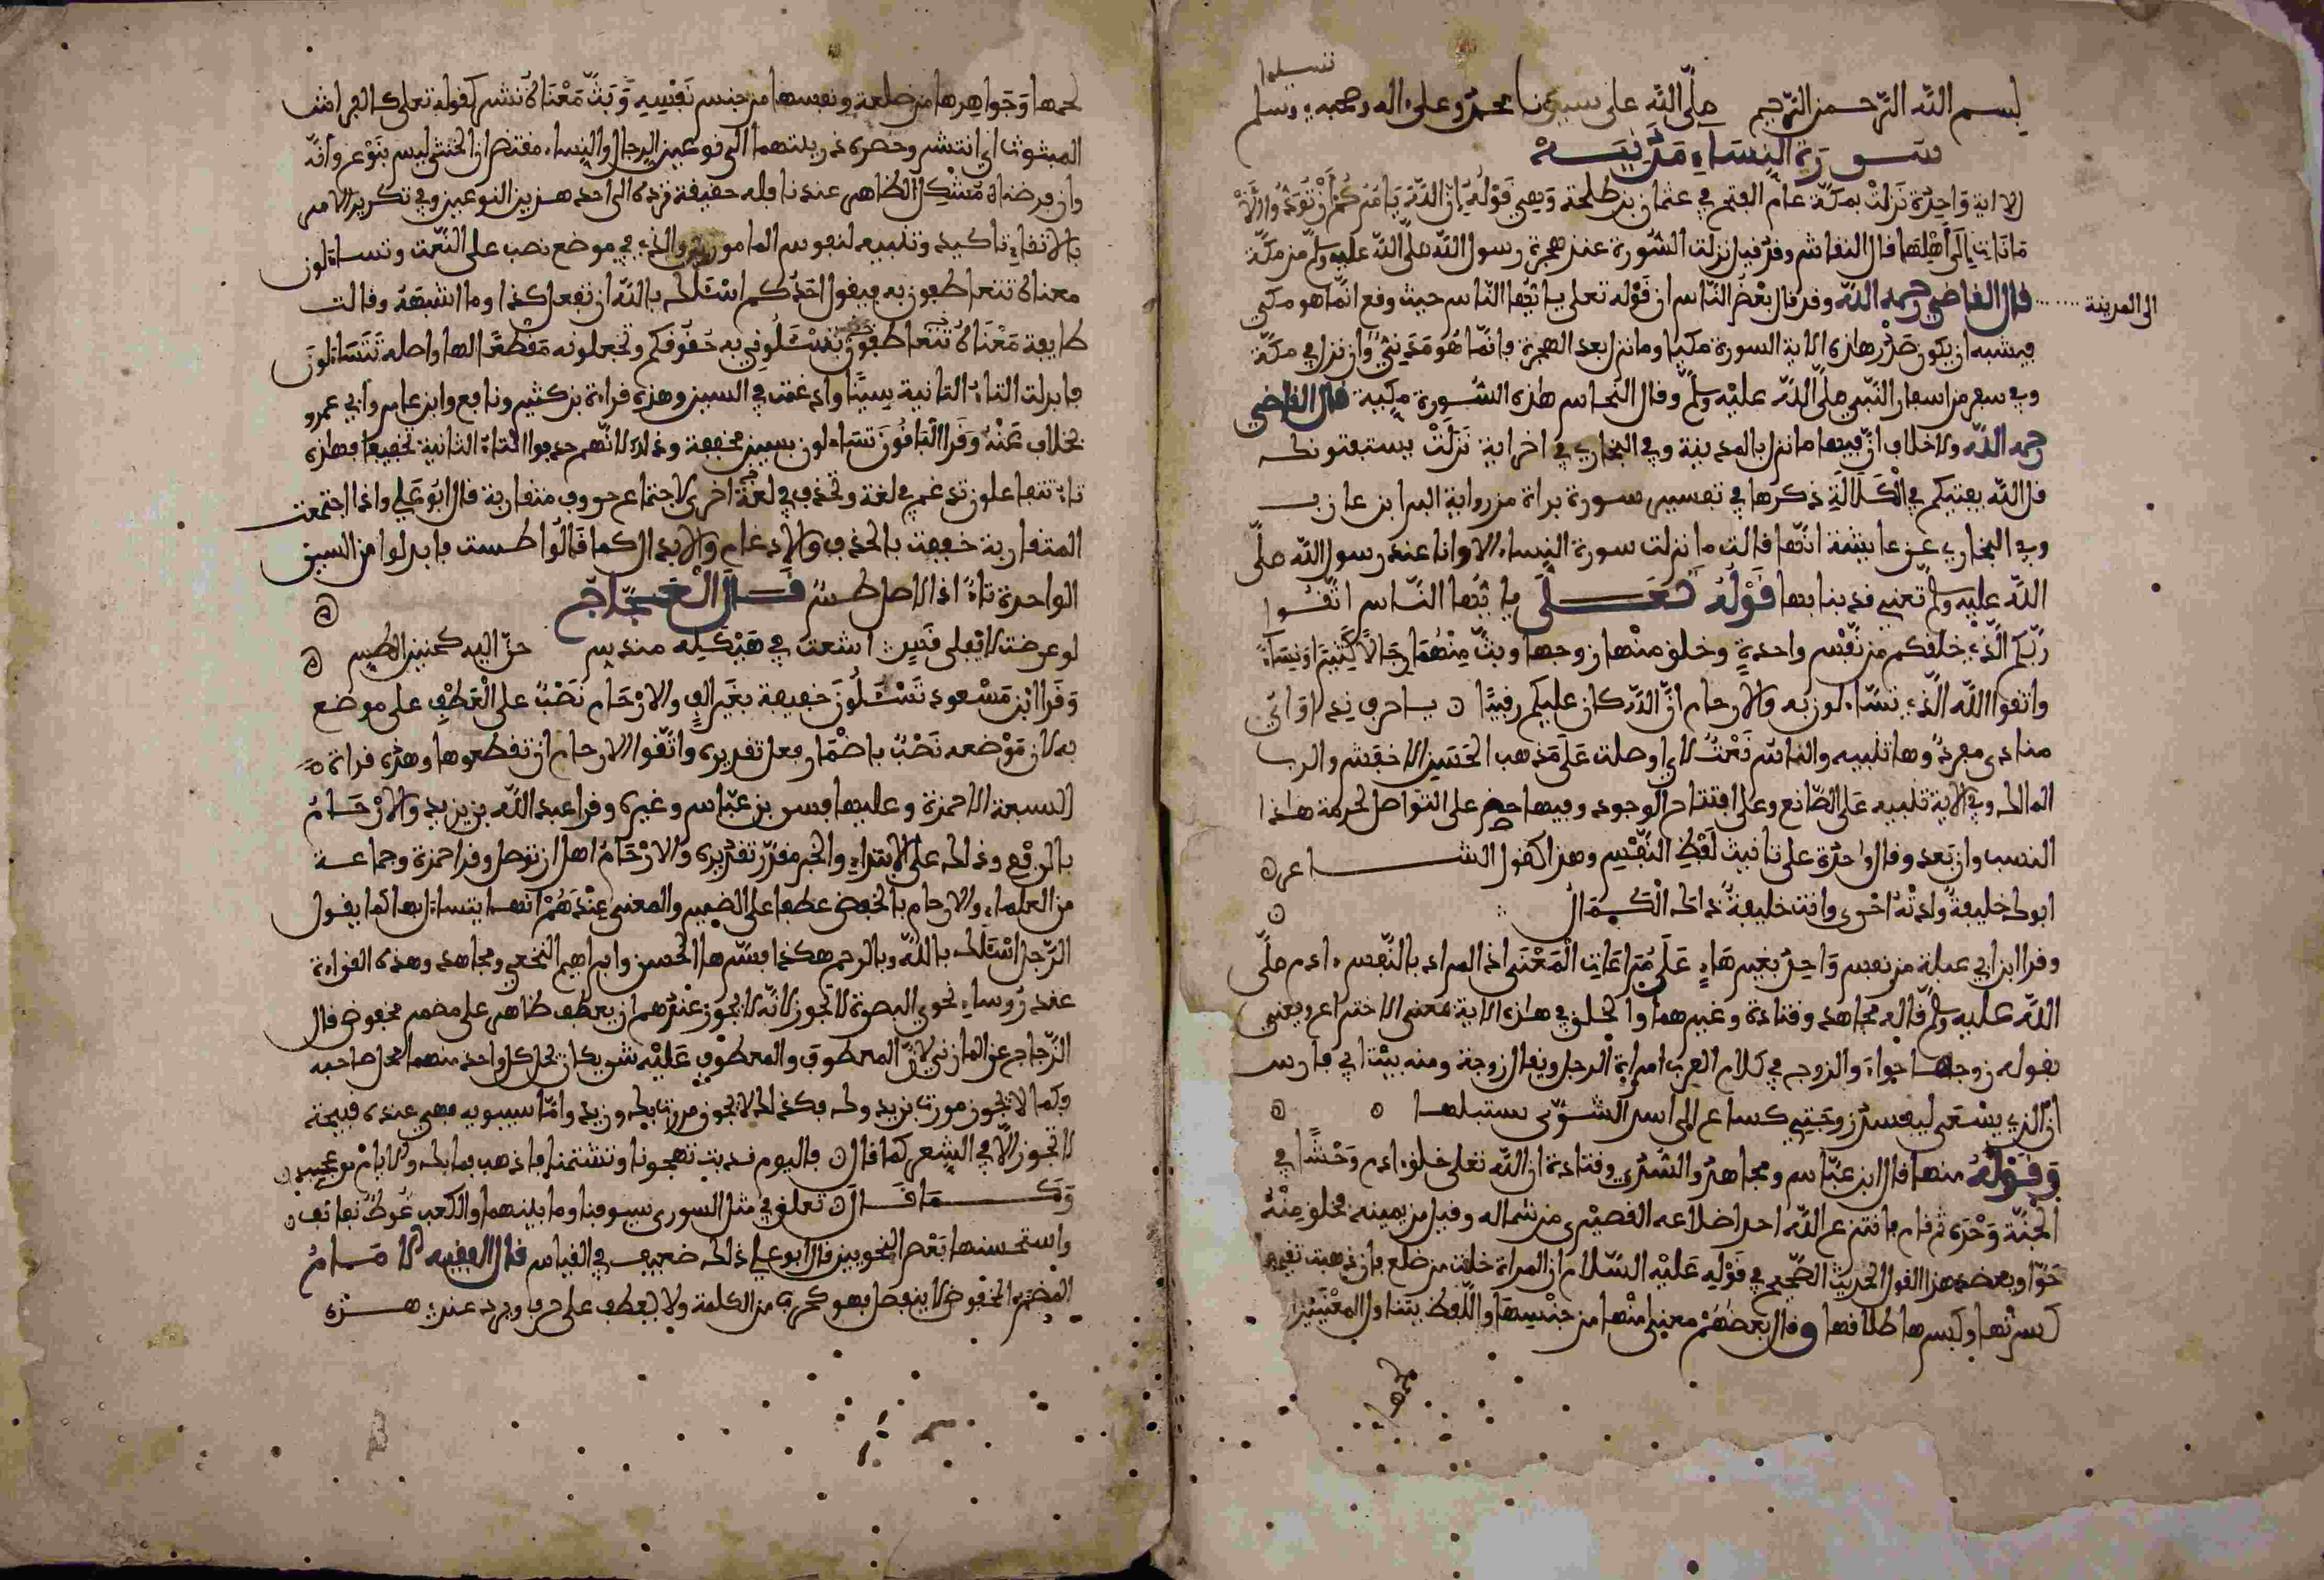 بسم الله الرحمن الرحيم صلى الله على سيدنا محمد وعلى اله وصحبه وسلم
تسليما
سورة النساء مدنية
الا اية واحدة نزلت بمكة عام الفتح في عثمان بن طلحة وهي قوله ان الله يامركم ان تودوا الا
مانات الى اهلها قال النقاش وقد قيل نزلت السورة عند هجرة رسول الله صلى الله عليه وسلم من مكة
الى المدينة قال القاضي رحمه الله وقد قال بعض الناس ان قوله تعلى يايها الناس حيث وقع انما هو مكي
فيشبه ان يكون صدر هاذه الاية السورة مكيا وما نزل بعد الهجرة فانما هو مدني وان نزل في مكة
وفي سفر من اسفار النبي صلى الله عليه وسلم وقال النحاس هاذه السورة مكية قال القاضي
رحمه الله ولا خلاف ان فيها ما نزل بالمدينة وفي البخاري في اخر اية نزلت يستفتونك
قل الله يفتيكم في الكلالة ذكرها في تفسير سورة براة من رواية البرا ابن عازب
وفي البخاري عن عايشة انها قالت ما نزلت سورة النساء الا وانا عند رسول الله صلى
الله عليه وسلم تعني قد بنا بها قوله تعلى يايها الناس اتقوا
ربكم الذي خلقكم من نفس واحدة وخلق منها زوجها وبث منهما رجالا كثيرا ونساء
واتقوا الله الذي تساءلون به والارحام ان الله كان عليكم رقيبا يا حرف نداء واي
منادى مفرد وها تنبيه والناس نعت لاي او صلة على مذهب ابي الحسن الاخفش والرب
المالك وفي الاية تنبيه على الصانع وعلى افتتاح الوجود وفيها حض على التواصل لحرمة هاذا
النسب وان بعد وقال واحدة على تانيث لفظ النفس وهذا كقول الشاعر
ابوك خليفة ولدته اخرى وانت خليفة ذاك الكمال
وقرا ابن ابي عبلة من نفس واحد بغير هاء على مراعات المعنى اذ المراد بالنفس ءادم صلى
الله عليه وسلم قاله مجاهد وقتادة وغيرهما والخلق في هاذه الاية بمعنى الاختراع ويعني
بقوله زوجها حواء والزوج في كلام العرب امراة الرجل ويقال زوجة ومنه بيت ابي فارس
ان الذي يسعى ليفسد زوجتي كساع الى اسد الشرى يستبيلها
وقوله منها قال ابن عباس ومجاهد والسدي وقتادة ان الله تعلى خلق ءادم وحشا في
الجنة وحده ثم نام فانتزع الله احد اضلاعه القصيرى من شماله وقيل من يمينه فخلق منه
حوا ويعضد هذا القول الحديث الصحيح في قوله عليه السلام ان المراة خلقت من ضلع فان ذهبت تقيمها
كسرتها وكسرها طلاقها وقال بعضهم معنى منها من جنسها واللفظ يتناول المعنيين
لحمها وجواهرها من ضلعه ونفسها من جنس نفسه وبث معناه نشر كقوله تعلى كالفراش
المبثوث اي انتشر وحصره ذريتهما الى نوعين الرجال والنساء مقتض ان الخنثى ليس بنوع وانه
وان فرضناه مشكل الظاهر عندنا فله حقيقة ترده الى احد هذين النوعين وفي تكرير الامر
بالاتقاء تاكيد وتنبيه لنفوس المامورين والذي في موضع نصب على النعت وتساءلون
معناه تتعاطفون به فيقول احدكم اسئلك بالله ان تفعل كذا وما اشبهه وقالت
طايفة معناه تتعاطفون تستلوني به حقوقكم وتجعلونه مقطعا لها واصله تتساءلون
فابدلت التاء الثانية سينا وادغمت في السين وهذه قراءة بن كثير ونافع وابن عامر وابي عمرو
بخلاف عنه وقرا الباقون تساءلون بسين مخففة وذلك لانهم حذفوا التاء الثانية تخفيفا فهاذه
تاء تتفاعلون تدغم في لغة وتحذف في لغة اخرى لاجتماع حروف متقاربة قال ابو علي واذا اجتمعت
المتقاربة خففت بالحذف والادغام والابدال كما قالوا طست فابدلوا من السين
الواحدة تاء اذ الاصل طس قال العجاج
لو عرضت لايبلي قس اشعث في هيكله مندس حن اليها كحنين الطس
وقرا ابن مسعود تسئلون خفيفة بغير الف والارحام نصب على العطف على موضع
به لان موضعه نصب باضمار فعل تقديره واتقوا الارحام ان تقطعوها وهذه قراءة
السبعة الا حمزة وعليها فسر بن عباس وغيره وقرا عبد الله بن يزيد والارحام
بالرفع وذلك على الابتداء والخبر مقدر تقديره والارحام اهل ان توصل وقرا حمزة وجماعة
من العلماء والارحام بالخفض عطفا على الضمير والمعنى عندهم انها يتساءل بها كما يقول
الرجل اسئلك بالله وبالرحم هكذا فسرها الحسن وابراهيم النخعي ومجاهد وهذه القراءة
عند روساء نحوي البصرة لا تجوز لانه لا يجوز عندهم ان يعطف ظاهر على مضمر مخفوض قال
الزجاج عن المازني لان المعطوف والمعطوف عليه شريكان يحل كل واحد منهما محل صاحبه
فكما لا تجوز مررت بزيد وك فكذلك لا يجوز مررت بك وزيد واما سيبويه فهي عنده قبيحة
لا تجوز الا في الشعر كما قال فاليوم قد بت تهجونا وتشتمنا فاذهب فما بك والايام من عجب
وكما قال تعلق في مثل السوري سيوفنا وما بينهما والكعب غوط نفانف
واستحسنها بعض النحويين قال ابو علي ذلك ضعيف في القياس قال الفقيه الامام
المضمر المخفوض لا ينفصل فهو كحرف من الكلمة ولا يعطف على حرف ويرد عندي هذه